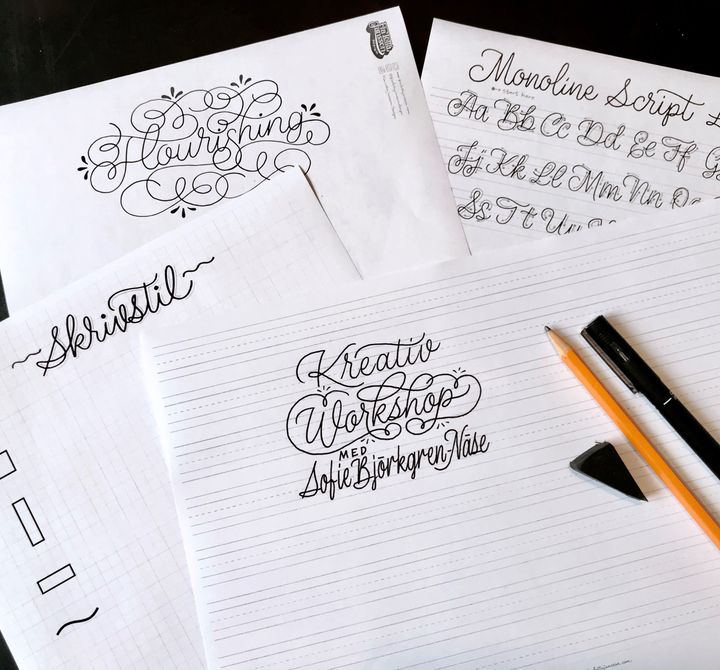 Flourishing
Monoline Script
start here
Aa Bb Cc Dd Ee Ff
Jj Kk Ll Mm Nn
Ss Tt
Skrivstil
Kreativ
Workshop
MED
Sofie Björkgren-Näse